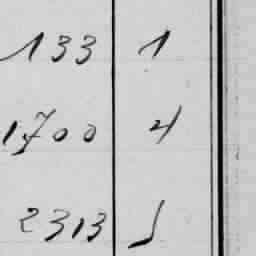 133 1
1700 4
2313